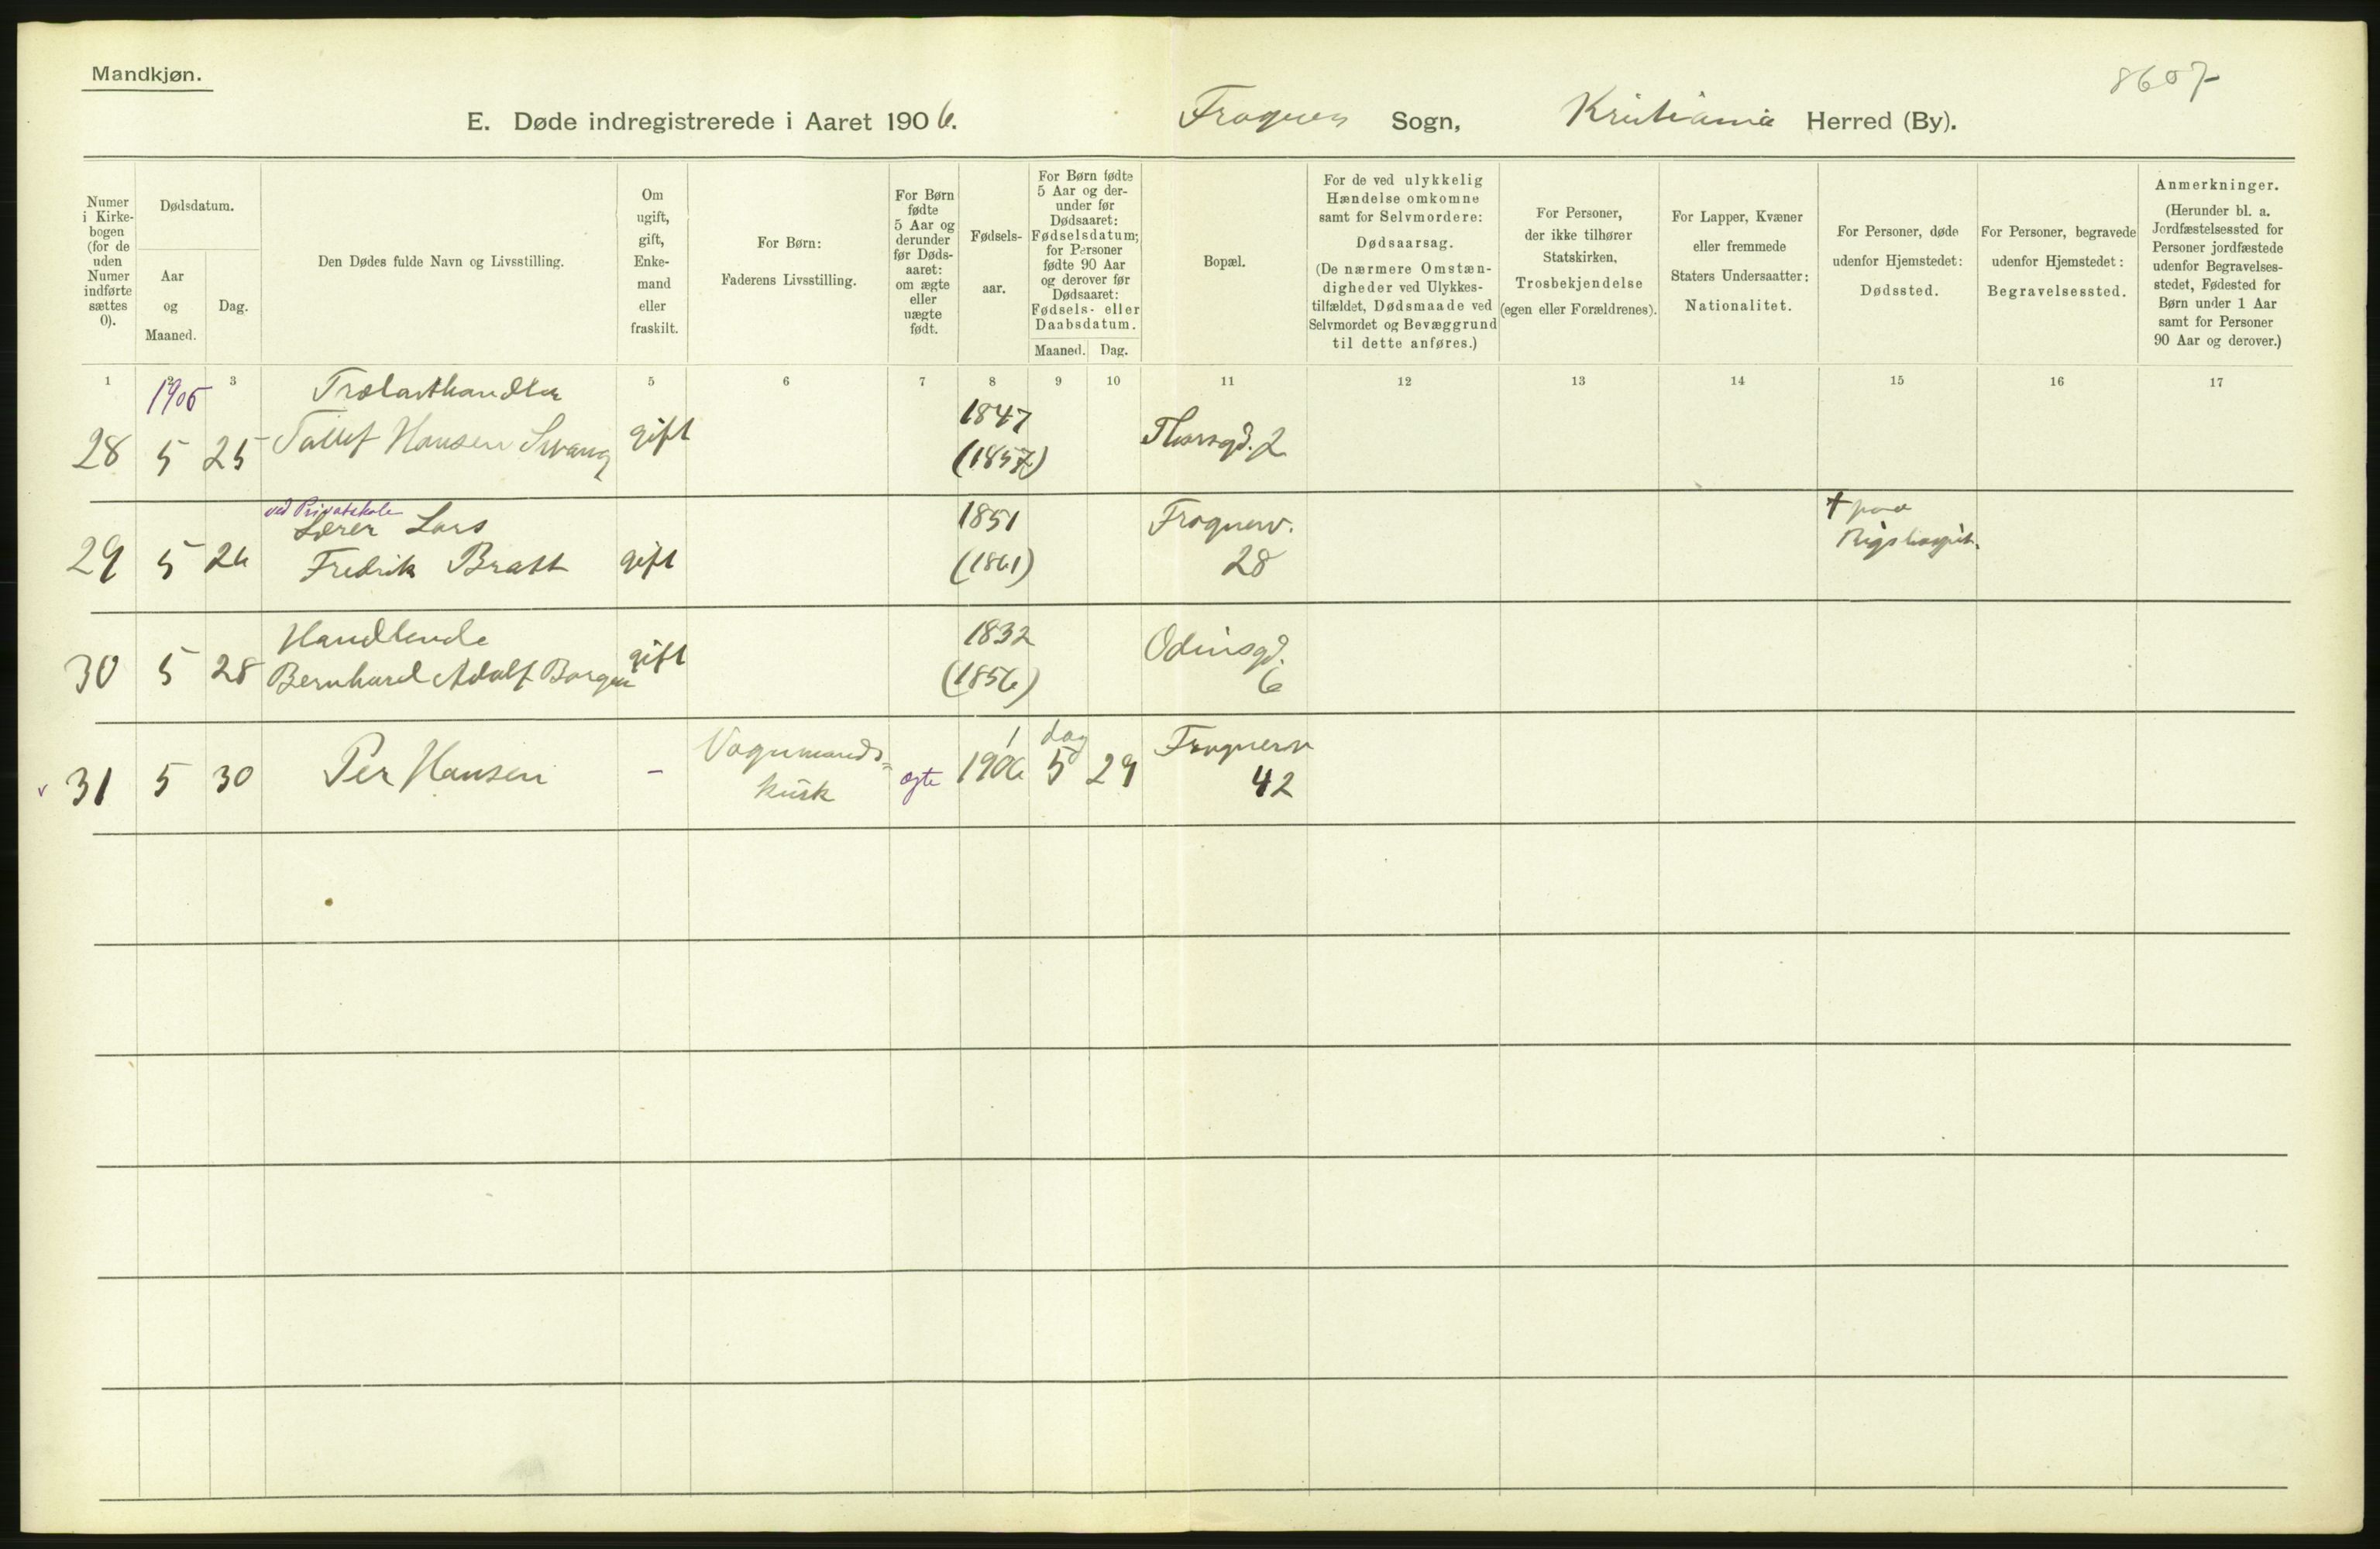 Mandkjøn.
8607
E. Døde indregistrerede i Aaret 1906. Frogner Sogn, Kristiania Herred (By).
Numer i Kirkebogen (for de uden Numer indførte sættes 0).
Dødsdatum.
Aar og Maaned.
Dag.
Den Dødes fulde Navn og Livsstilling.
Om ugift, gift, Enkemand eller fraskilt.
For Børn: Faderens Livsstilling.
For Børn fødte 5 Aar og derunder før Dødsaaret: om ægte eller uægte født.
Fødselsaar.
For Børn fødte 5 Aar og derunder før Dødsaaret: Fødselsdatum; for Personer fødte 90 Aar og derover før Dødsaaret: Fødsels- eller Daabsdatum.
Maaned. Dag.
Bopæl.
For de ved ulykkelig Hændelse omkomne samt for Selvmordere: Dødsaarsag. (De nærmere Omstændigheder ved Ulykkestilfældet, Dødsmaade ved Selvmordet og Bevæggrund til dette anføres.)
For Personer, der ikke tilhører Statskirken, Trosbekjendelse (egen eller Forældrenes).
For Lapper, Kvæner eller fremmede Staters Undersaatter: Nationalitet.
For Personer, døde udenfor Hjemstedet: Dødssted.
For Personer, begravede udenfor Hjemstedet: Begravelsessted.
Anmerkninger. (Herunder bl. a. Jordfæstelsessted for Personer jordfæstede udenfor Begravelsesstedet, Fødested for Børn under 1 Aar samt for Personer 90 Aar og derover.)
1 2 3 5 6 7 8 9 10 11 12 13 14 15 16 17
1906 Trælasthandler 1847
28 5 25 Tallef Hansen Svang gift (1857) Thorsgd. 2
ved Privatskole
Lærer Lars 1851 Frognerv. † paa
29 5 26 Fredrik Bratt gift (1861) 28 Rigshospit.
Handlende 1832 Odinsgd.
30 5 28 Bernhard Adolf Borgen gift (1856) 6
1 dag
Vognmands= Frognerv
v 31 5 30 Per Hansen - kusk ægte 1906 5 29 42